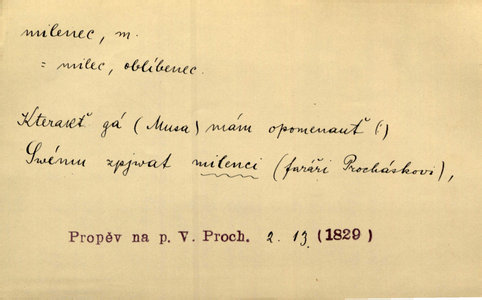 milenec, m.
= milec, oblíbenec.
Kterakť gá (Musa) mám opomenauť (!)
Swému zpjwat milenci (faráři Procháskovi),
Propěv na p. V. Proch. 2. 13 (1829)